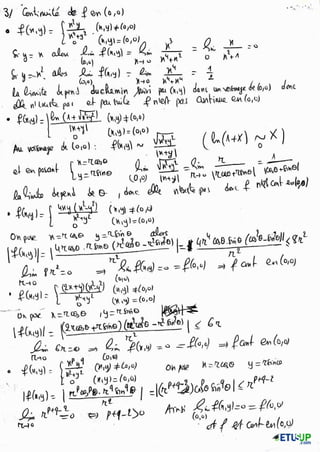 3/ Continuité de f en (0,0)
• f(x,y) = { x²y / (x⁴+y²) (x,y)≠(0,0)
0 (x,y)=(0,0)
Si y = x alors lim f(x,y) = lim x³/(x⁴+x²) = lim x/(x²+1) = 0
(0,0) x→0 x→0
Si y = x² alors lim f(x,y) = lim x⁴/(x⁴+x⁴) = 1/2
(0,0) x→0
La limite dépend du chemin suivi par (x,y) dans un voisinage de (0,0) donc
elle n'existe pas et par suite f n'est pas continue en (0,0)
• f(x,y) = { ln(1+√(x²+y²)) / (|x|+|y|) (x,y)≠(0,0)
0 (x,y)=(0,0)
Au voisinage de (0,0) : f(x,y) ~ √(x²+y²) / (|x|+|y|) (ln(1+X) ~ X)
et en posant { x = r cosθ
y = r sinθ
lim √(x²+y²) / (|x|+|y|) = lim r / (|r cosθ|+|r sinθ|) = 1 / (|cosθ|+|sinθ|)
(0,0) r→0
La limite dépend de θ, donc elle n'existe pas donc f n'est cont en (0,0)
• f(x,y) = { 4xy(x²-y²) / (x²+y²) (x,y)≠(0,0)
0 (x,y)=(0,0)
On pose x = r cosθ y = r sinθ alors
|f(x,y)| = |4r cosθ . r sinθ (r²cos²θ - r²sin²θ) / r²| = |4r² cosθ sinθ (cos²θ - sin²θ)| ≤ 8r²
lim 8r² = 0 ⇒ lim f(x,y) = 0 = f(0,0) ⇒ f cont en (0,0)
r→0 (0,0)
• f(x,y) = { (2x+y)(x²-y²) / (x²+y²) (x,y)≠(0,0)
0 (x,y)=(0,0)
On pose x = r cosθ, y = r sinθ
|f(x,y)| = |(2r cosθ + r sinθ)(r²cos²θ - r²sin²θ) / r²| ≤ 6r
lim 6r = 0 ⇒ lim f(x,y) = 0 = f(0,0) ⇒ f cont en (0,0)
r→0 (0,0)
• f(x,y) = { x^p y^q / (x²+y²) (x,y)≠(0,0)
0 (x,y)=(0,0)
On pose x = r cosθ y = r sinθ
|f(x,y)| = |r^p cos^pθ . r^q sin^qθ / r²| = |(r^(p+q-2)) cos^pθ sin^qθ| ≤ r^(p+q-2)
lim r^(p+q-2) = 0 ⇔ p+q-2 > 0 Ainsi lim f(x,y) = 0 = f(0,0)
r→0 (0,0)
et f est cont en (0,0)
ETUUP
.com